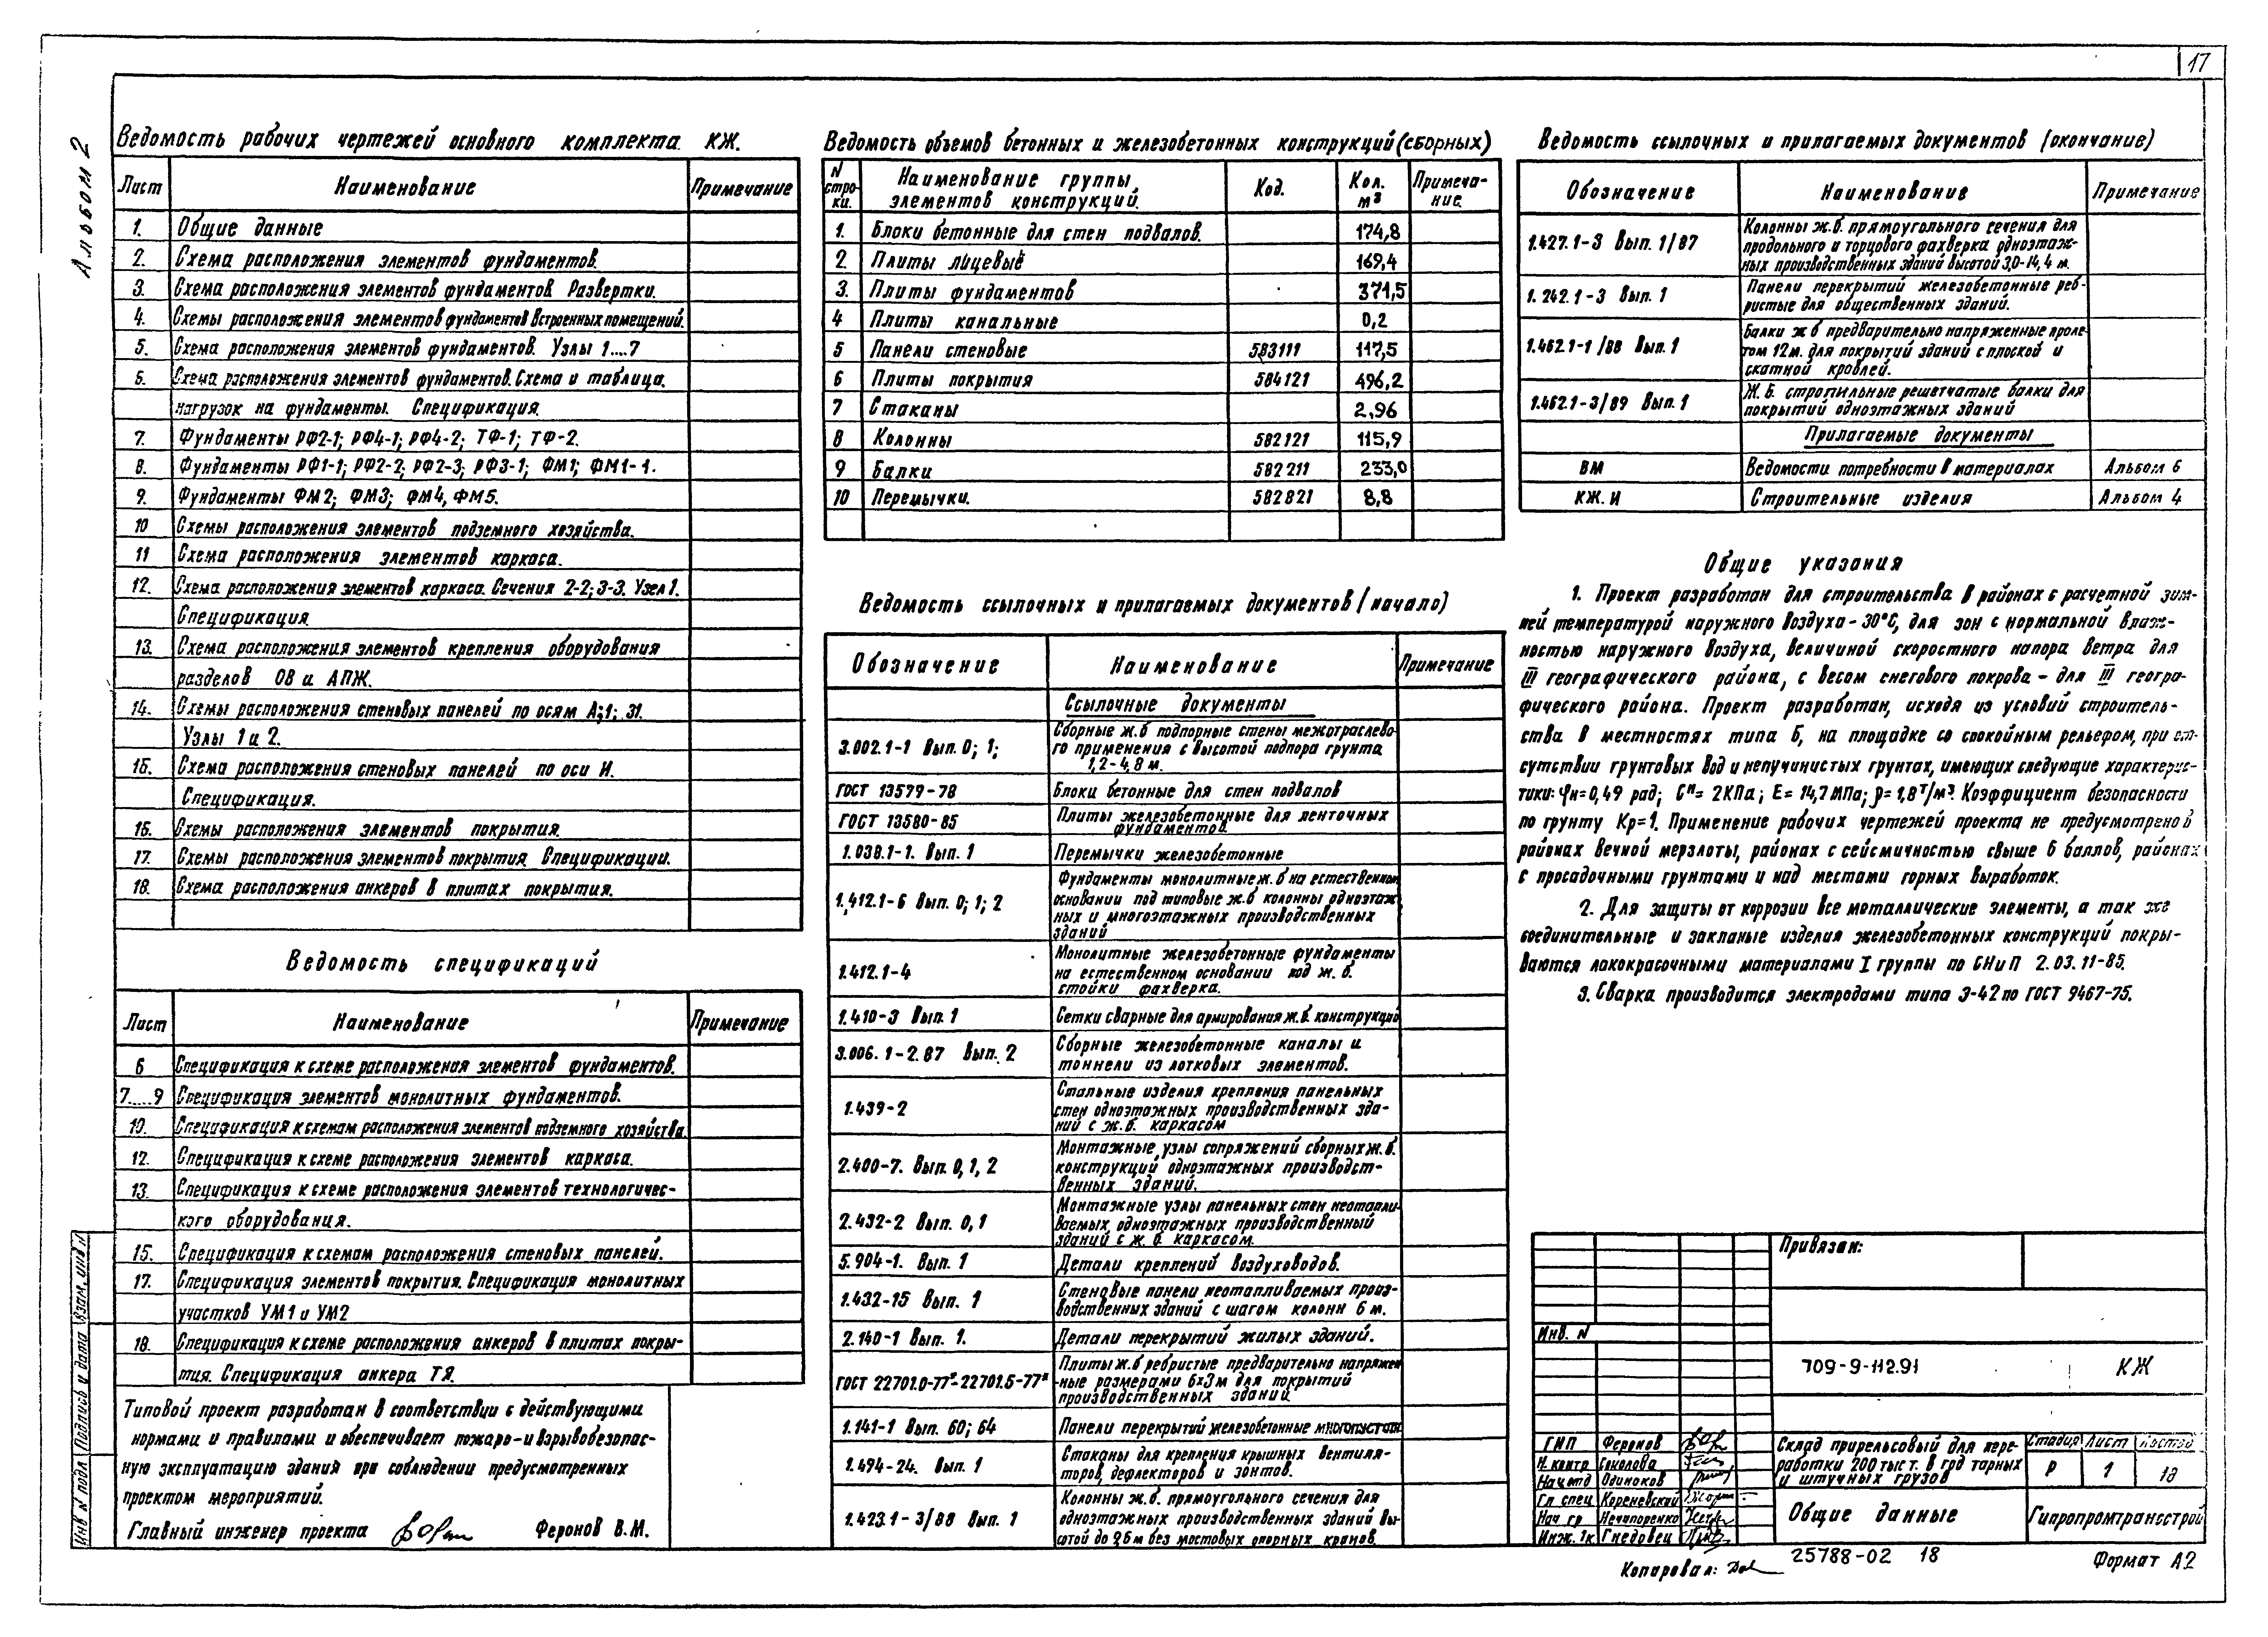 17
Альбом 2
Ведомость рабочих чертежей основного комплекта КЖ.
Лист Наименование Примечание
1. Общие данные
2. Схема расположения элементов фундаментов.
3. Схема расположения элементов фундаментов Развертки.
4. Схемы расположения элементов фундаментов встроенных помещений.
5. Схема расположения элементов фундаментов. Узлы 1....7
6. Схема расположения элементов фундаментов. Схема и таблица.
нагрузок на фундаменты. Спецификация.
7. Фундаменты РФ2-1; РФ4-1; РФ4-2; ТФ-1; ТФ-2.
8. Фундаменты РФ1-1; РФ2-2; РФ2-3; РФ3-1; ФМ1; ФМ1-1.
9. Фундаменты ФМ2; ФМ3; ФМ4, ФМ5.
10 Схемы расположения элементов подземного хозяйства.
11 Схема расположения элементов каркаса.
12. Схема расположения элементов каркаса. Сечения 2-2; 3-3. Узел 1.
Спецификация.
13. Схема расположения элементов крепления оборудования
разделов ОВ и АПЖ.
14. Схемы расположения стеновых панелей по осям А;1; 31.
Узлы 1 и 2.
15. Схема расположения стеновых панелей по оси И.
Спецификация.
16. Схемы расположения элементов покрытия.
17. Схемы расположения элементов покрытия. Спецификации.
18. Схема расположения анкеров в плитах покрытия.
Ведомость спецификаций
Лист Наименование Примечание
6 Спецификация к схеме расположения элементов фундаментов.
7....9 Спецификация элементов монолитных фундаментов.
10. Спецификация к схемам расположения элементов подземного хозяйства.
12. Спецификация к схеме расположения элементов каркаса.
13. Спецификация к схеме расположения элементов технологичес-
кого оборудования.
15. Спецификация к схемам расположения стеновых панелей.
17. Спецификация элементов покрытия. Спецификация монолитных
участков УМ1 и УМ2
18. Спецификация к схеме расположения анкеров в плитах покры-
тия. Спецификация анкера ТЯ.
Типовой проект разработан в соответствии с действующими
нормами и правилами и обеспечивает пожаро-и взрывобезопас-
ную эксплуатацию здания при соблюдении предусмотренных
проектом мероприятий.
Главный инженер проекта Феронов В.М.
Инв N подл Подпись и дата Взам. инв N
Ведомость объемов бетонных и железобетонных конструкций (сборных)
N стро-ки. Наименование группы, элементов конструкций. Код. Кол. м³ Примеча-ние.
1. Блоки бетонные для стен подвалов. 174,8
2. Плиты лицевые 169,4
3. Плиты фундаментов 371,5
4 Плиты канальные 0,2
5 Панели стеновые 583111 117,5
6 Плиты покрытия 584121 496,2
7 Стаканы 2,96
8 Колонны 582121 115,9
9 Балки 582211 233,0
10 Перемычки. 582821 8,8
Ведомость ссылочных и прилагаемых документов (начало)
Обозначение Наименование Примечание
Ссылочные документы
3.002.1-1 Вып. 0; 1; Сборные ж.б подпорные стены межотраслево-
го применения с высотой подпора грунта
1,2-4,8 м.
ГОСТ 13579-78 Блоки бетонные для стен подвалов
ГОСТ 13580-85 Плиты железобетонные для ленточных
фундаментов.
1.038.1-1. Вып. 1 Перемычки железобетонные
1.412.1-6 Вып. 0; 1; 2 Фундаменты монолитные ж.б на естественном
основании под типовые ж.б колонны одноэтаж
ных и многоэтажных производственных
зданий
1.412.1-4 Монолитные железобетонные фундаменты
на естественном основании под ж.б.
стойки фахверка.
1.410-3 Вып. 1 Сетки сварные для армирования ж.б. конструкций
3.006.1-2.87 Вып. 2 Сборные железобетонные каналы и
тоннели из лотковых элементов.
1.439-2 Стальные изделия крепления панельных
стен одноэтажных производственных зда-
ний с ж.б. каркасом
2.400-7. Вып. 0, 1, 2 Монтажные узлы сопряжений сборных ж.б.
конструкций одноэтажных производст-
венных зданий.
2.432-2 Вып. 0, 1 Монтажные узлы панельных стен неотапли-
ваемых, одноэтажных производственный
зданий с ж.б. каркасом.
5.904-1. Вып. 1 Детали креплений воздуховодов.
1.432-15 Вып. 1 Стеновые панели неотапливаемых произ-
водственных зданий с шагом колонн 6 м.
2.140-1 Вып. 1. Детали перекрытий жилых зданий.
ГОСТ 22701.0-77*-22701.5-77* Плиты ж.б ребристые предварительно напряжен
-ные размерами 6х3м для покрытий
производственных зданий.
1.141-1 Вып. 60; 64 Панели перекрытий железобетонные многопустотн
1.494-24. Вып. 1 Стаканы для крепления крышных вентиля-
торов, дефлекторов и зонтов.
1.423.1-3/88 Вып. 1 Колонны ж.б. прямоугольного сечения для
одноэтажных производственных зданий вы-
сотой до 9,6м без мостовых опорных кранов.
Ведомость ссылочных и прилагаемых документов (окончание)
Обозначение Наименование Примечание
1.427.1-3 Вып. 1/87 Колонны ж.б. прямоугольного сечения для
продольного и торцового фахверка одноэтаж-
ных производственных зданий высотой 3,0-14,4 м.
1.242.1-3 Вып. 1 Панели перекрытий железобетонные реб-
ристые для общественных зданий.
1.462.1-1/88 Вып. 1 Балки ж б предварительно напряженные проле-
том 12м. для покрытий зданий с плоской и
скатной кровлей.
1.462.1-3/89 Вып. 1 Ж.Б. стропильные решетчатые балки для
покрытий одноэтажных зданий
Прилагаемые документы
ВМ Ведомости потребности в материалах Альбом 6
КЖ.И Строительные изделия Альбом 4
Общие указания
1. Проект разработан для строительства в районах с расчетной зим-
ней температурой наружного воздуха - 30°С, для зон с нормальной влаж-
ностью наружного воздуха, величиной скоростного напора ветра для
III географического района, с весом снегового покрова - для III геогра-
фического района. Проект разработан, исходя из условий строитель-
ства в местностях типа Б, на площадке со спокойным рельефом, при от-
сутствии грунтовых вод и непучинистых грунтах, имеющих следующие характерис-
тики: φн=0,49 рад; Сн = 2КПа; Е= 14,7 МПа; ρ= 1,8 т/м³. Коэффициент безопасности
по грунту Кр=1. Применение рабочих чертежей проекта не предусмотрено в
районах вечной мерзлоты, районах с сейсмичностью свыше 6 баллов, районах
с просадочными грунтами и над местами горных выработок.
2. Для защиты от коррозии все металлические элементы, а так же
соединительные и закланые изделия железобетонных конструкций покры-
ваются лакокрасочными материалами I группы по СНиП 2.03.11-85.
3. Сварка производится электродами типа Э-42 по ГОСТ 9467-75.
Привязан:
Инв. N
709-9-112.91 КЖ
ГИП Феронов
Н. контр Соколова
Нач отд Одиноков
Гл спец Кореневский
Нач гр Нечипоренко
Инж. 1к. Гнедовец
Склад прирельсовый для пере-
работки 200 тыс т. в год тарных
и штучных грузов
Стадия Лист Листов
Р 1 18
Общие данные
Гипропромтрансстрой
Копировал:
25788-02 18
Формат А2